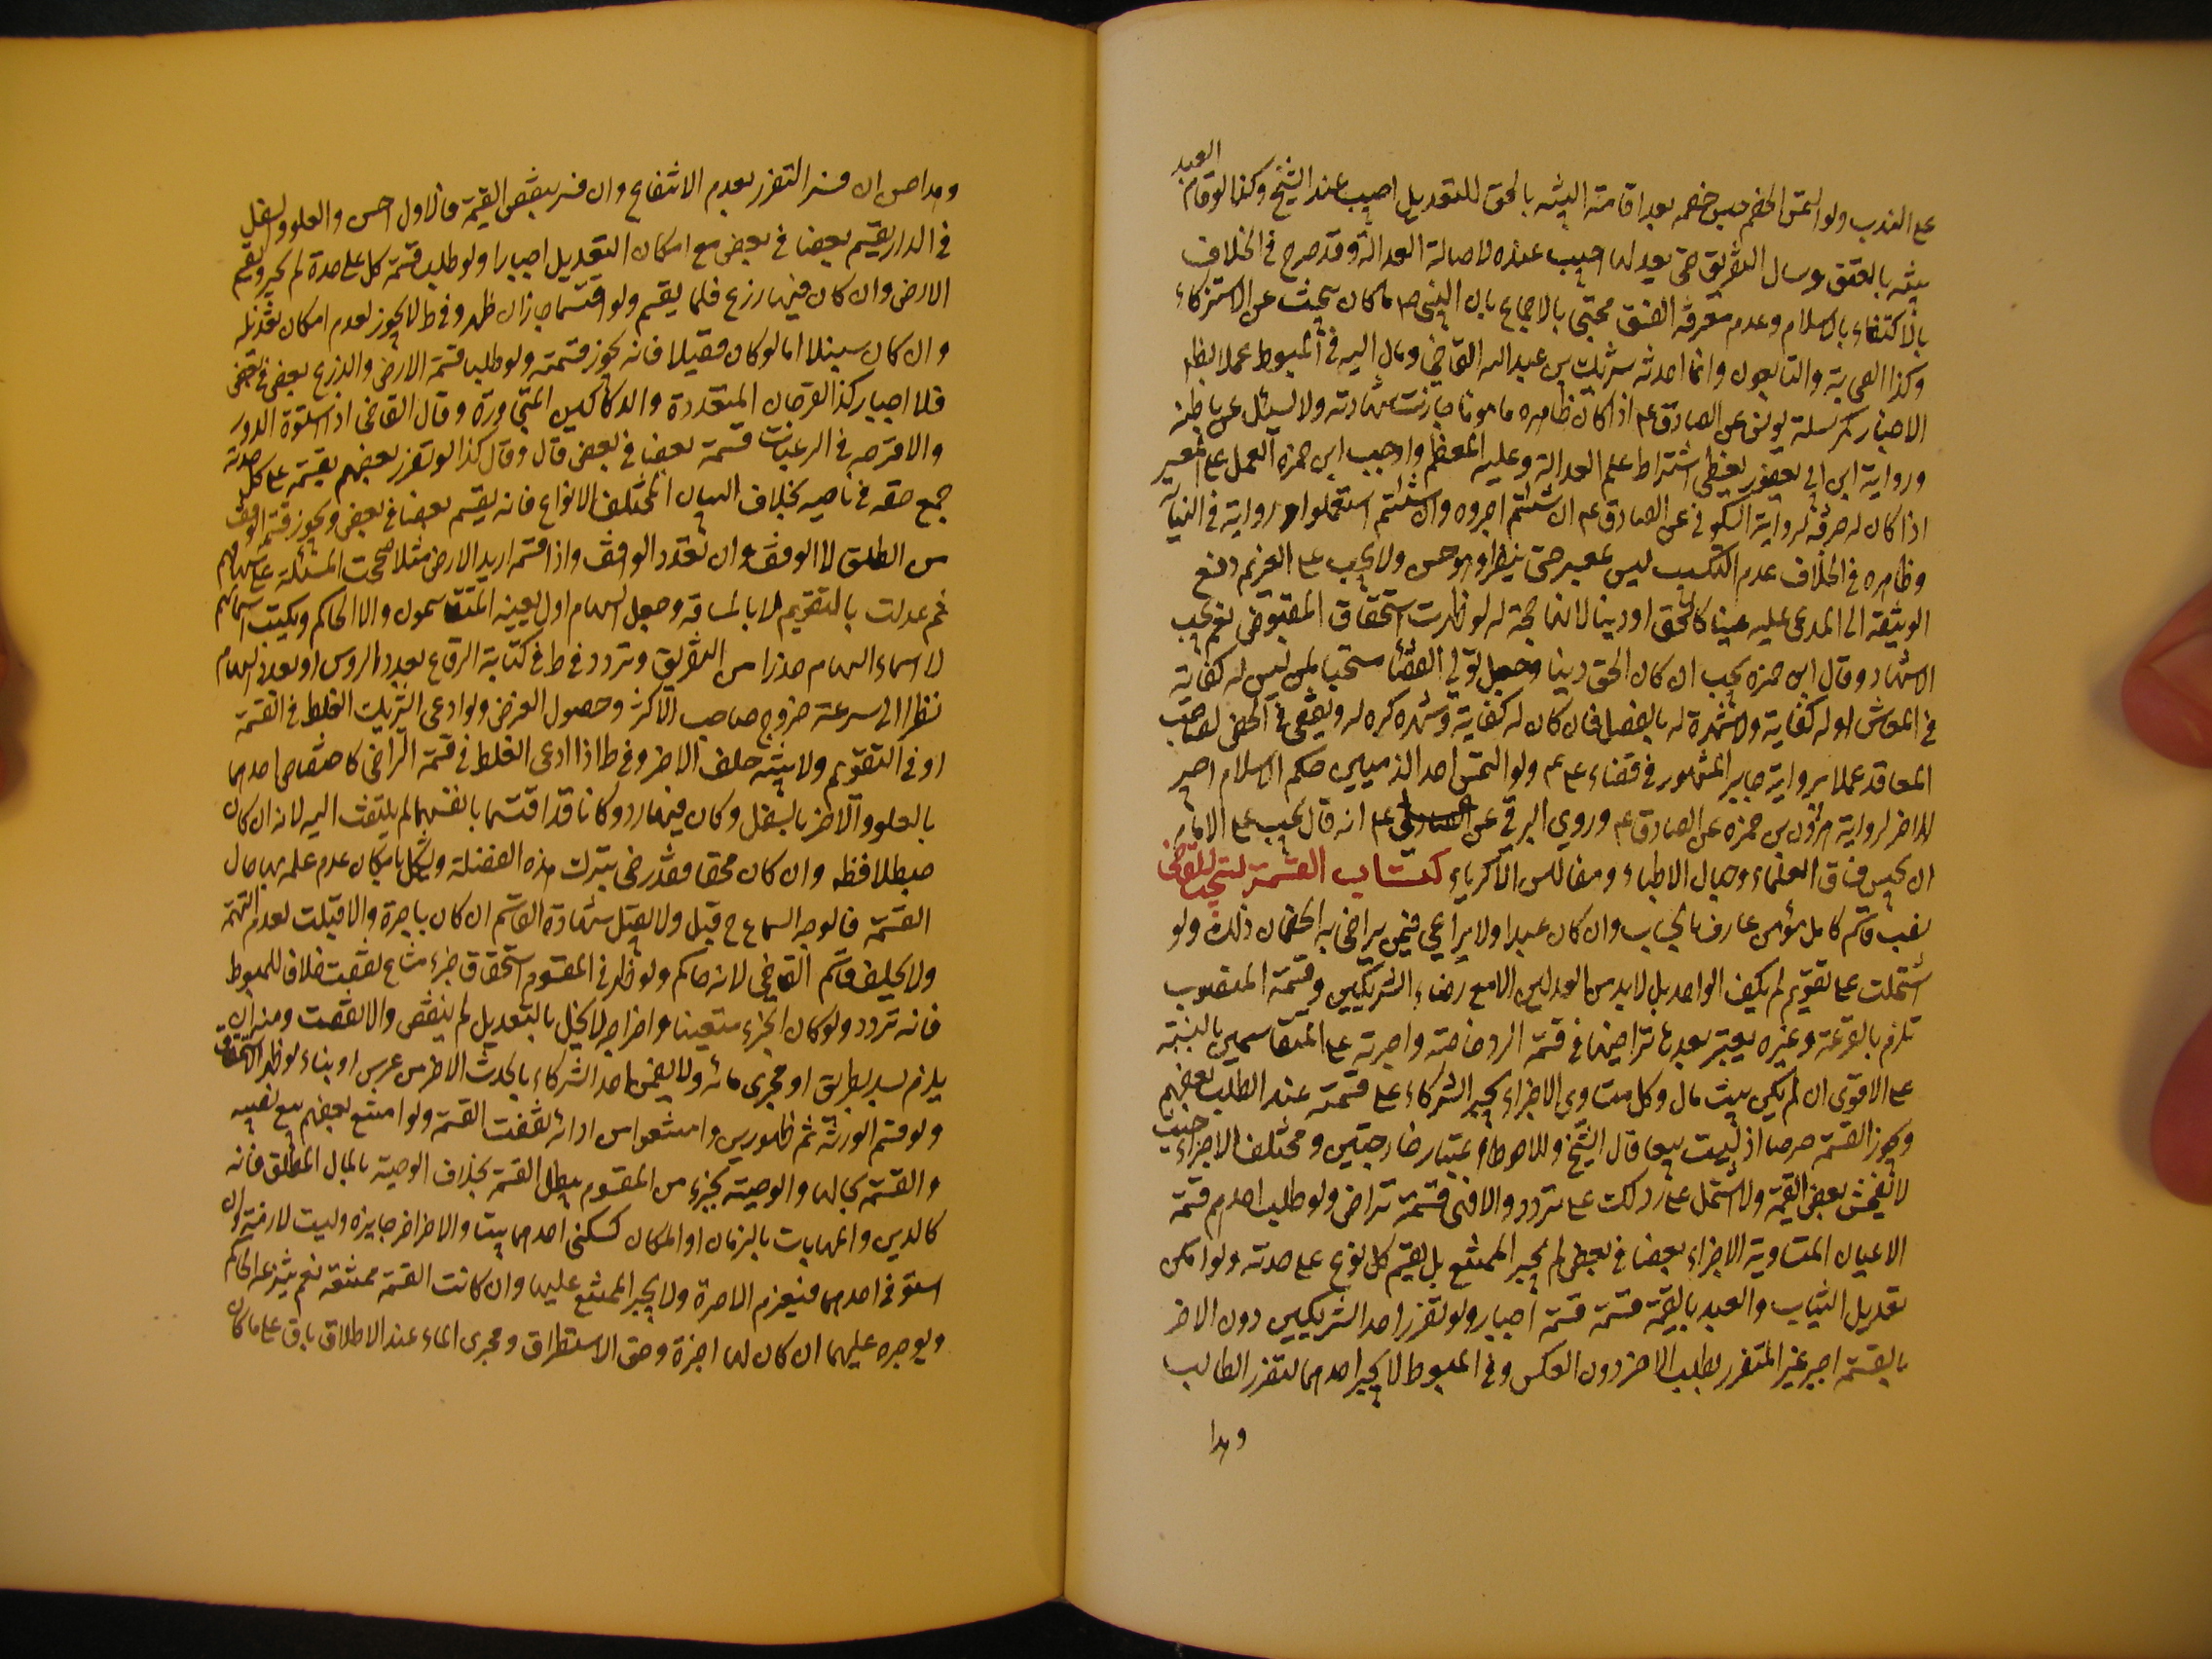 على الندب ولو التمس الخصم حبس خصمه بعد اقامته البينة بالحق للتعديل اجيب عند الشيخ وكذا لو اقام العبد
بينة بالعتق وسال التفريق حتى يعدلها اجيب عنده لاصالة العدالة وقد صرح في الخلاف
بالاكتفاء بالاسلام وعدم معرفة الفسق محتجا بالاجماع بان النبي ص ما كان يبحث عن الاستزكاء
وكذا الصحابة والتابعون وانما احدثه شريك بن عبد الله القاضي ومال اليه في المبسوط عملا بظاهر
الاخبار كمرسلة يونس عن الصادق ع اذا كان ظاهره مامونا جازت شهادته ولا يسئل عن باطنه
ورواية ابن ابي يعفور يعطي اشتراط علم العدالة وعليه المعظم واوجب ابن حمزه العمل على المعسر
اذا كان له حرفة لرواية السكوني عن الصادق ع ان شئتم اجروه وان شئتم استعملوه رواية في النهاية
وظاهره في الخلاف عدم التكسب ليس بمعسر حتى ينظر وهو حسن ولا يجب على الغريم دفع
الوثيقة الى المدعى عليه عينا كان الحق او دينا لانها حجة له لو ظهرت استحقاق المقبوض نعم يجب
الاشهاد وقال ابن حمزه يجب ان كان الحق دينا وجعل تولي القضاء مستحبا لمن ليس له كفاية
في المعاش او له كفاية ولا شهرة له بالفضل فان كان له كفاية وشهرة كره له ويقضى في الخص لصاحب
المعاقد عملا برواية جابر المشهور في قضاء علي ع ولو التمس احد الذميين حكم الاسلام اجبر
الاخر لرواية هرون بن حمزه عن الصادق ع وروى البرقي عن علي ع انه قال يجب على الامام
ان يحبس فساق العلماء وجهال الاطباء ومفاليس الاكرياء كتاب القسمة يستحب للقاضي
نصب قاسم كامل مؤمن عارف بالحساب وان كان عبدا ولا يراعي فيمن يراضى به الخصمان ذلك ولو
اشتملت على تقويم لم يكف الواحد بل لا بد من العدلين الا مع رضاء الشريكين وقسمة المنصوب
تلزم بالقرعة وغيره يعتبر بعدها تراضيهما في قسمة الرد خاصة واجرته على المتقاسمين بالنسبة
على الاقوى ان لم يكن بيت مال وكل متساوي الاجزاء يجبر الشركاء على قسمته عند الطلب بعضهم
ويجوز القسمة خرصا اذ ليست بيعا قال الشيخ والاحوط اعتبار خارجتين ومختلف الاجزاء حيث
لا ينقص بعض القيمة ولا يشتمل على رد لكت على تردد والا فهي قسمة تراض ولو طلب احدهم قسمة
الاعيان المتساوية الاجزاء بعضا في بعض لم يجبر الممتنع بل يقسم كل نوع على حدته ولو امكن
تعديل الثياب والعبيد بالقيمة قسمت قسمة اجبار ولو تضرر احد الشريكين دون الاخر
بالقسمة اجبر غير المتضرر بطلب الاخر دون العكس وفي المبسوط لا يجبر احدهما لتضرر الطالب
وهذا
وهذا حسن ان فسر التضرر بعدم الانتفاع وان فسر بنقص القيمة فالاول احسن والعلو والسفل
في الدار يقسم بعضا في بعض مع امكان التعديل اجبارا ولو طلب قسمة كل على حدة لم يجبر ويقسم
الارض وان كان فيها زرع فلما يقسم ولو اقتسما جاز ان ظهر وفي ط لا يجوز لعدم امكان تعديله
وان كان سنبلا اما لو كان قصيلا فانه يجوز قسمته ولو طلب قسمة الارض والزرع بعض في بعض
فلا اجبار كذا القرحان المتعددة والدكاكين المتجاورة وقال القاضي اذا استوت الدور
والاقرحة في الرغبات قسمت بعضا في بعض قال وقال كذا لو تضرر بعضهم بقسمة على كل حدته
جمع حقه في ناحية بخلاف البيان المختلف الانواع فانه يقسم بعضا في بعض ويجوز قسمة الوقف
من الطلق لا الوقف وان تعدد الواقف واذا قسمة اريد الارض مثلا صححت المسئلة على سهامهم
ثم عدلت بالتقويم لا بالمساحة وجعل السهام اول يعينه المتقاسمون والا الحاكم ويكتب اسماءهم
لا اسماء السهام حذرا من التفريق وتردد في ط في كتابة الرقاع بعدد الروس او بعدد السهام
نظرا الى سرعة خروج صاحب الاكثر وحصول الغرض ولو ادعى الشريك الغلط في القسمة
او في التقويم ولا بينة حلف الاخر وفي ط اذا ادعى الغلط في قسمة التراضي كاختصاص احدهما
بالعلو والاخر بالسفل وكان فيها رد وكانا قد اقتسما بانفسهما لم يلتفت اليه لانه ان كان
مبطلا فظه وان كان محقا فقد رضي بترك هذه الفضلة ويشكل بامكان عدم علمه بها حال
القسمة فالوجه السماع ح قيل ولا يقبل شهادة القاسم ان كان باجرة والا قبلت لعدم التهمة
ولا يحلف قاسم القاضي لانه حاكم ولو ظهر في المقسوم استحقاق جزء مشاع نقضت خلافا للمبسوط
فانه تردد ولو كان الجزء متعينا واخراجه لا يخل بالتعديل لم ينقض والا نقضت ومنه ان
يلزم سد طريق او مجرى مائه ولا يضمن احد الشركاء ما يحدث الاخر من غرس او بناء لو ظهر الاستحقاق
ولو قسم الورثة ثم ظهر دين وامتنعوا من ادائه نقضت القسمة ولو امتنع بعضهم بيع نصيبه
والقسمة بحالها والوصية بجزء من المقسوم يبطل القسمة بخلاف الوصية بالمال المطلق فانه
كالدين والمهايات بالزمان او المكان كسكنى احدهما بيت والاخر اخر جايزة وليست لازمة وان
استوفى احدهما فيغرم الاجرة ولا يجبر الممتنع عليها وان كانت القسمة ممتنعة نعم ينتزعه الحاكم
ويوجره عليهما ان كان لها اجرة وحق الاستطراق ومجرى الماء عند الاطلاق باق على ما كان